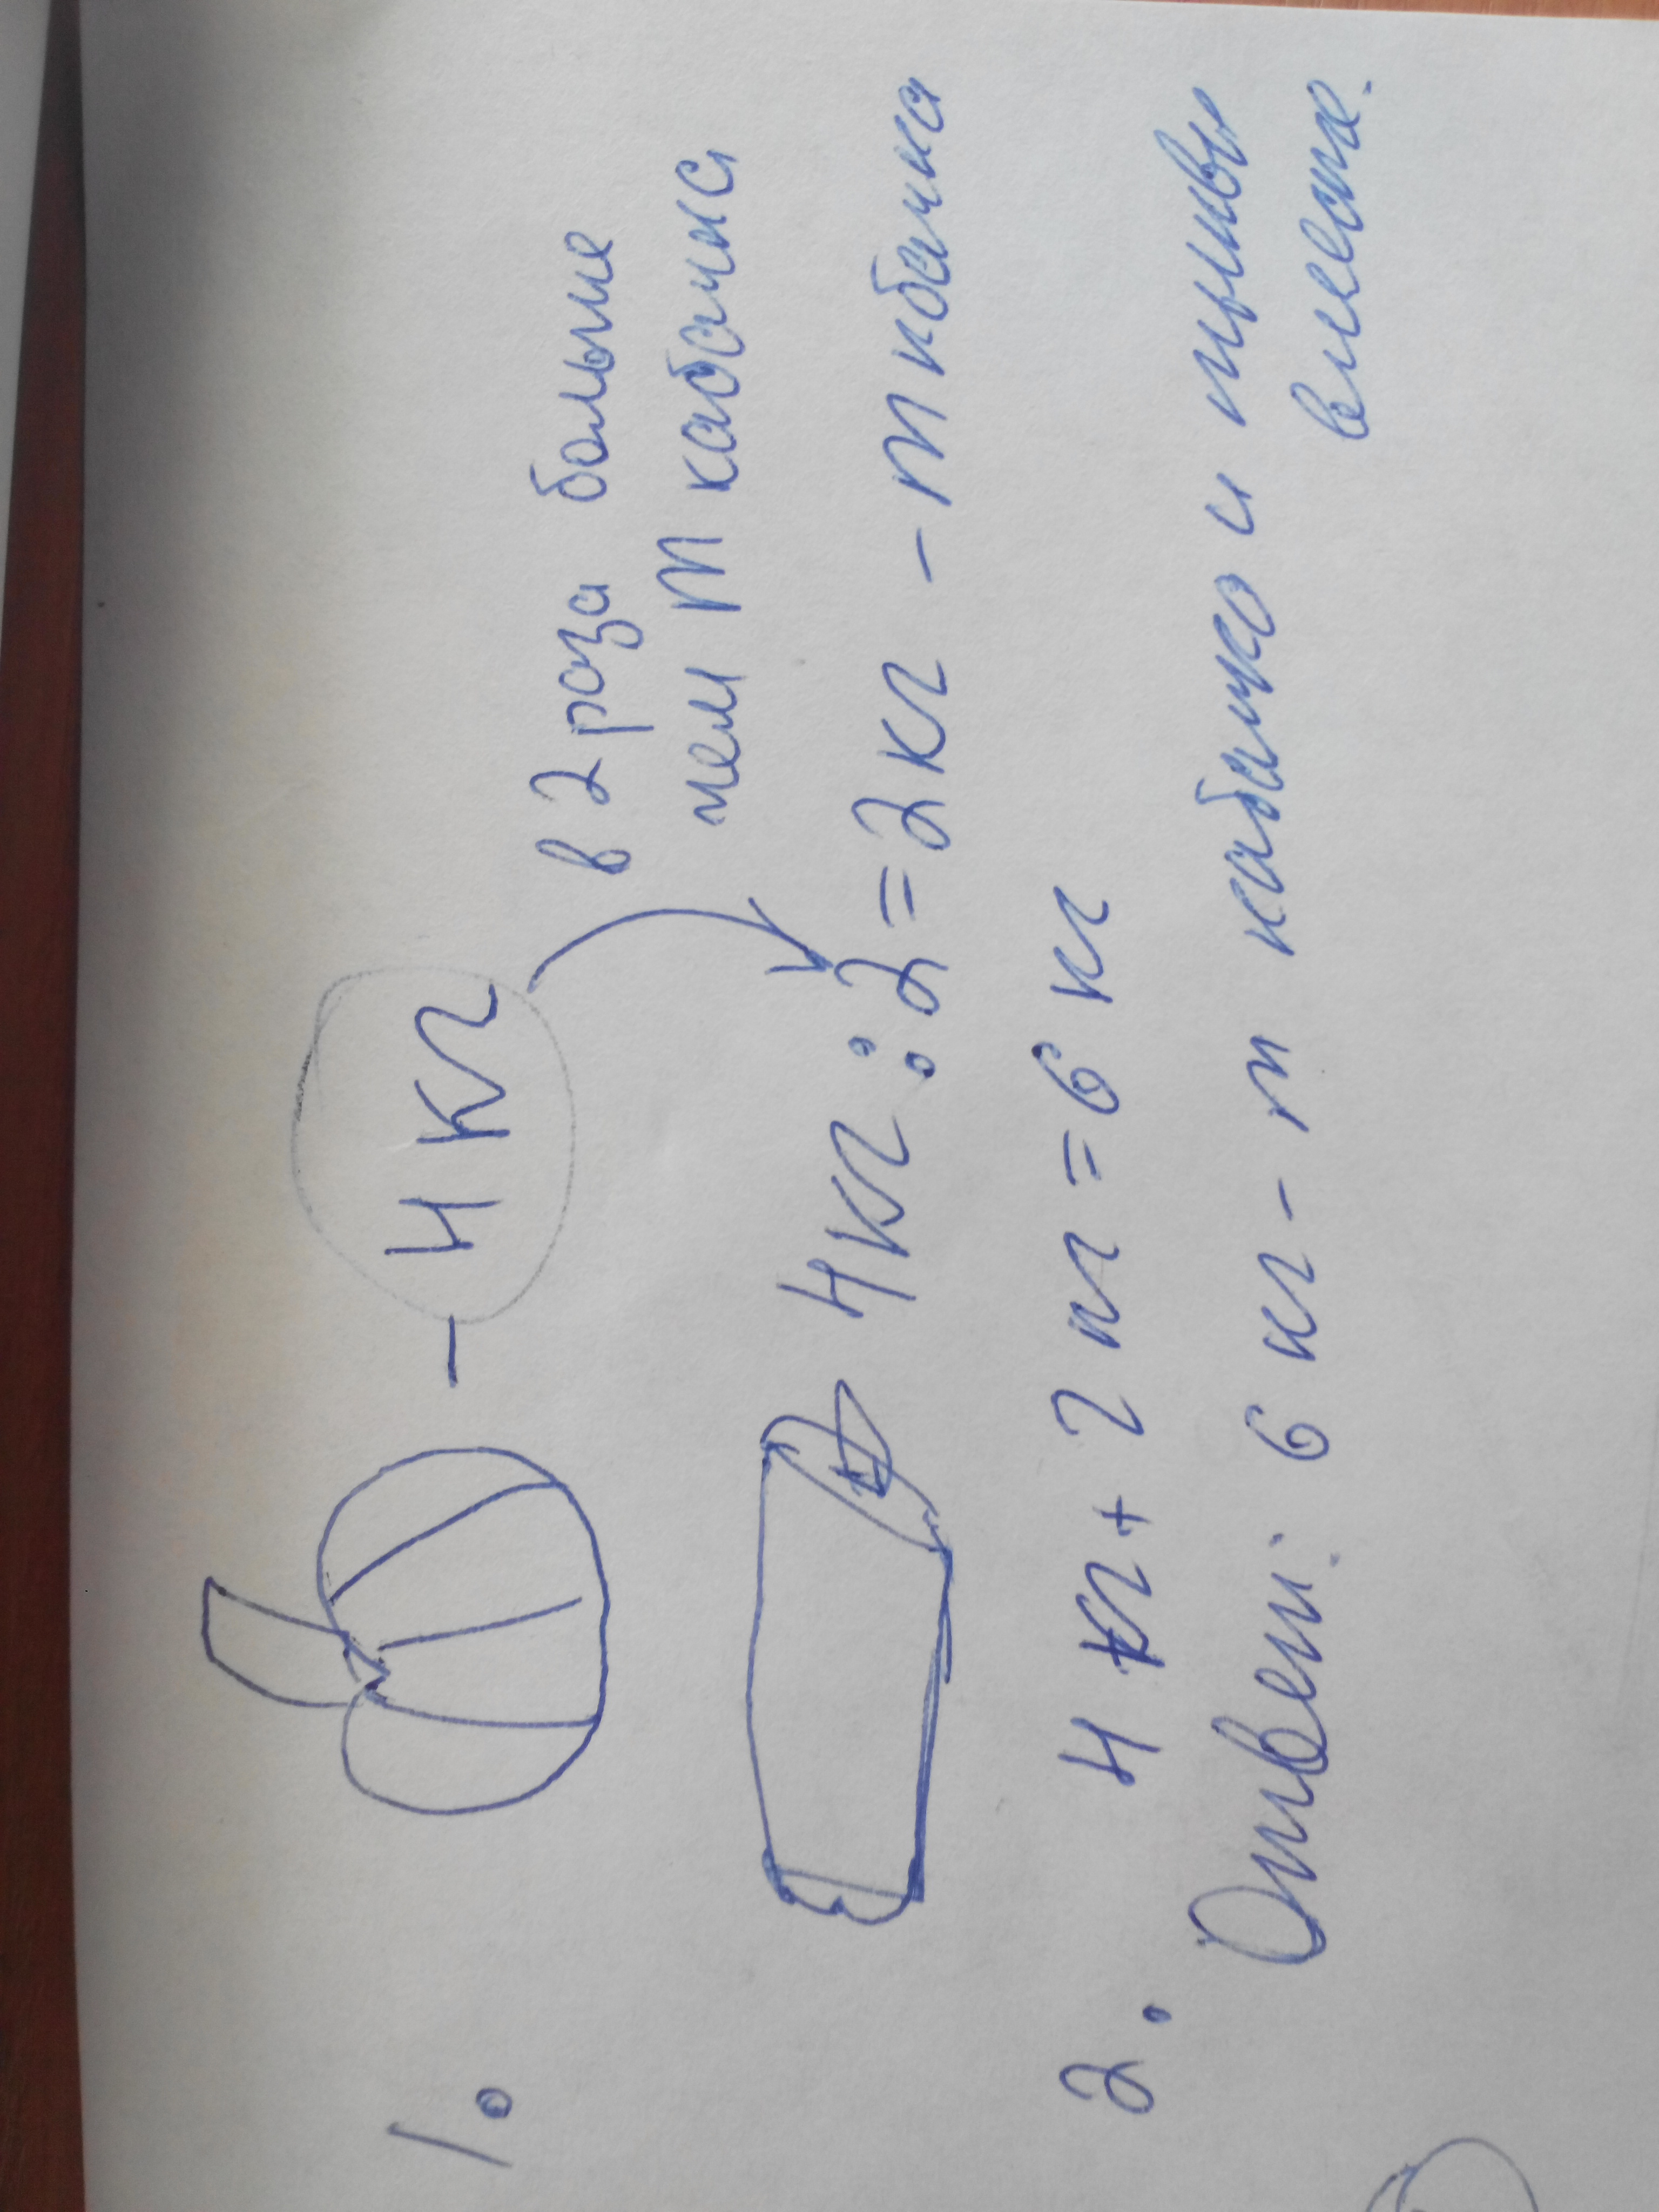 1.
- 4 кг
в 2 раза больше
чем m кабачка
4кг : 2 = 2кг - m кбачка
2. 4 кг + 2 кг = 6 кг
Ответ: 6 кг - m кабачка и тыквы
вместе.